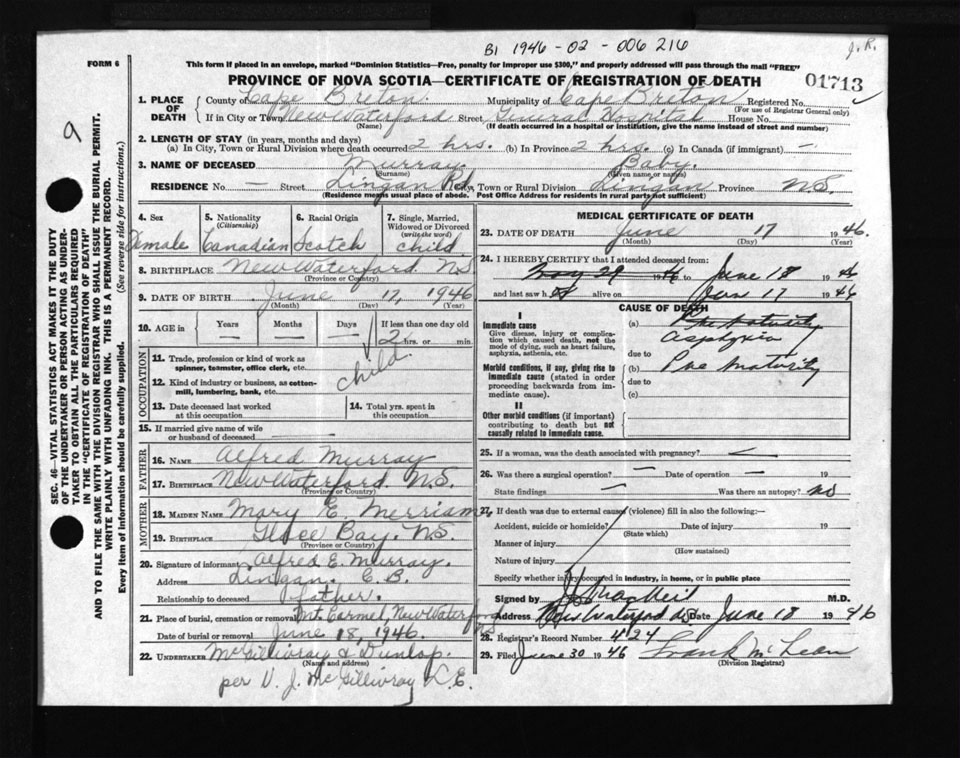 B1 1946-02-006216
J.R.
FORM 6
This form if placed in an envelope, marked "Dominion Statistics—Free, penalty for improper use $300," and properly addressed will pass through the mail "FREE"
PROVINCE OF NOVA SCOTIA—CERTIFICATE OF REGISTRATION OF DEATH
01713
1. PLACE OF DEATH
County of Cape Breton. Municipality of Cape Breton Registered No.
(For use of Registrar General only)
If in City or Town New Waterford Street General Hospital House No.
(Name) (If death occurred in a hospital or institution, give the name instead of street and number)
2. LENGTH OF STAY (in years, months and days)
(a) In City, Town or Rural Division where death occurred 2 hrs. (b) In Province 2 hrs. (c) In Canada (if immigrant) —
3. NAME OF DECEASED Murray Baby.
(Surname) (Given name or names)
RESIDENCE No. — Street Lingan Rd. City, Town or Rural Division Lingan Province N.S.
(Residence means usual place of abode. Post Office Address for residents in rural parts not sufficient)
4. Sex
Female
5. Nationality
(Citizenship)
Canadian
6. Racial Origin
Scotch
7. Single, Married, Widowed or Divorced
(write the word)
child
8. BIRTHPLACE New Waterford N.S
(Province or Country)
9. DATE OF BIRTH June 17, 1946
(Month) (Day) (Year)
10. AGE in
Years
—
Months
—
Days
—
If less than one day old
2 hrs. or min.
OCCUPATION
11. Trade, profession or kind of work as spinner, teamster, office clerk, etc.
12. Kind of industry or business, as cotton-mill, lumbering, bank, etc.
child
13. Date deceased last worked at this occupation
14. Total yrs. spent in this occupation
15. If married give name of wife or husband of deceased —
FATHER
16. NAME Alfred Murray
17. BIRTHPLACE New Waterford. N.S.
(Province or Country)
MOTHER
18. MAIDEN NAME Mary E. Merriam
19. BIRTHPLACE Glace Bay. N.S.
(Province or Country)
20. Signature of informant Alfred E. Murray.
Address Lingan. C.B.
Relationship to deceased father.
21. Place of burial, cremation or removal Mt Carmel, New Waterford
Date of burial or removal June 18, 1946.
22. UNDERTAKER McGillivray & Dunlop.
(Name and address)
per V. J. McGillivray L.E.
MEDICAL CERTIFICATE OF DEATH
23. DATE OF DEATH June 17 1946.
(Month) (Day) (Year)
24. I HEREBY CERTIFY that I attended deceased from:
May 29 1946 to June 18 1946
and last saw h er alive on June 17 1946
CAUSE OF DEATH
I
Immediate cause
Give disease, injury or complication which caused death, not the mode of dying, such as heart failure, asphyxia, asthenia, etc.
(a) Prematurity
asphyxia
due to
Morbid conditions, if any, giving rise to immediate cause (stated in order proceeding backwards from immediate cause).
(b) Prematurity
due to
(c)
II
Other morbid conditions (if important) contributing to death but not causally related to immediate cause.
25. If a woman, was the death associated with pregnancy? —
26. Was there a surgical operation? — Date of operation — 19
State findings — Was there an autopsy? no
27. If death was due to external causes (violence) fill in also the following:—
Accident, suicide or homicide? Date of injury 19
(State which)
Manner of injury
(How sustained)
Nature of injury
Specify whether injury occurred in industry, in home, or in public place
Signed by MacNeil M.D.
Address New Waterford NS Date June 18 1946
28. Registrar's Record Number 424
29. Filed June 30 1946 Frank McLean
(Division Registrar)
9
SEC. 46—VITAL STATISTICS ACT MAKES IT THE DUTY
OF THE UNDERTAKER OR PERSON ACTING AS UNDER-
TAKER TO OBTAIN ALL THE PARTICULARS REQUIRED
IN THE "CERTIFICATE OF REGISTRATION OF DEATH"
AND TO FILE THE SAME WITH THE DIVISION REGISTRAR WHO SHALL ISSUE THE BURIAL PERMIT.
WRITE PLAINLY WITH UNFADING INK. THIS IS A PERMANENT RECORD.
Every item of information should be carefully supplied. (See reverse side for instructions.)